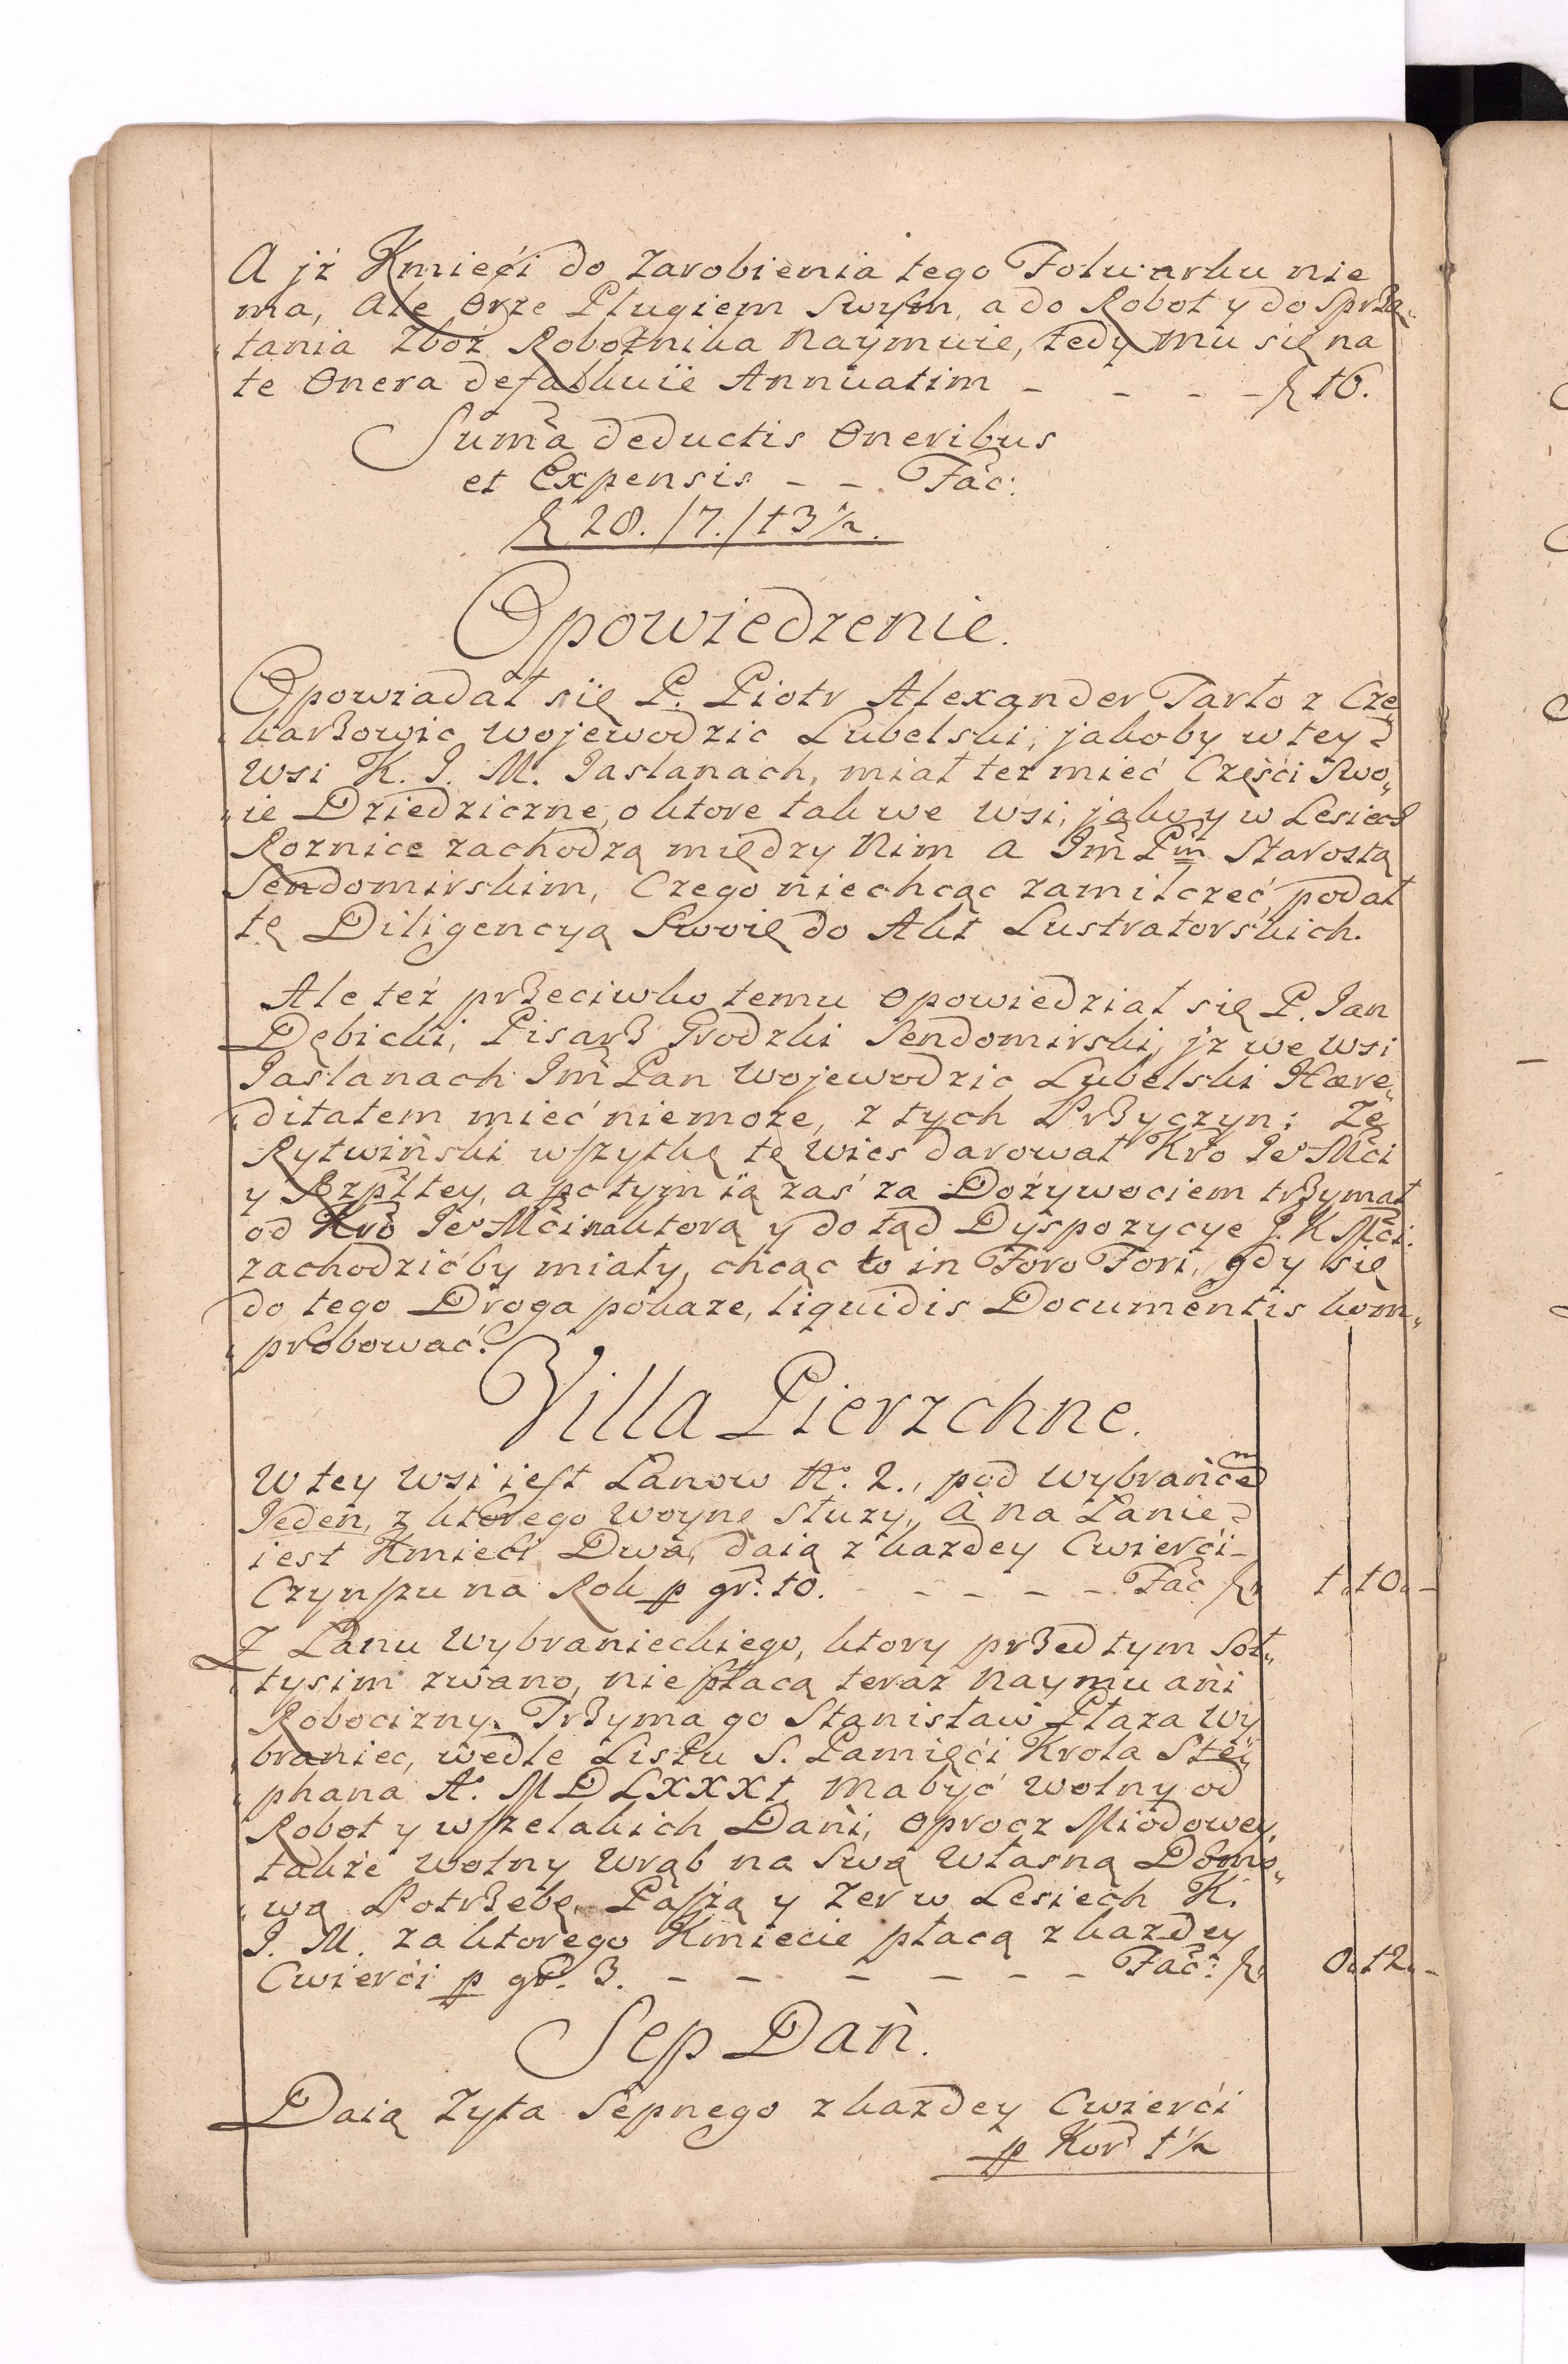 A jż Kmieći do Zarobienia tego Folwarku nie
ma, Ale Orze Pługiem Swym, a do Robot y do Sprzą„
„tania Zboż Robotnika Naymuie, tedy mu się na
te Onera defalkuie Annuatim - - - - f 16.
Sum̃a deductis Oneribus
et Expensis - - Fac:
f 28./7./13½.
Opowiedzenie.
Opowiadał się P. Piotr Alexander Tarło z Cze„
„karzowic Wojewodzic Lubelski, jakoby w tey
Wsi K. J. M. Jaslanach, miał też mieć Części Swo„
„ie Dziedziczne, o ktore tak we Wsi, jako y w Lesiech
Roznice zachodzą między Nim a Jm̃ Pm̃ Starostą
Sendomirskim, Czego niechcąc zamilczeć, podał
tę Diligencyą Swoię do Akt Lustratorskich.
Ale też przeciwko temu Opowiedział się P. Jan
Dębicki, Pisarz Grodzki Sendomirski, jż we Wsi
Jaślanach Jm̃ Pan Wojewodzic Lubelski Hære„
„ditatem mieć niemoże, z tych Przyczyn: Że
Rytwiński wszytkę tę Wieś darował Kro Jeº Mći
y Rzpltey, a potym ią zaś za Dożywociem trzymał
od Kro Jeº Mći na ktorą y do tąd Dyspozycye J. K Mći.
zachodzić by miały, chcąc to in Foro Fori, gdy się
do tego Droga pokaże, liquidis Documentis kom„
„probować.
Villa Pierzchne.
W tey Wsi iest Łanow Nº. 2., pod Wybrańcem
Jeden, z ktorego Woynę służy, A na Łanie
iest Kmieći Dwa, daią z każdey Cwierći
Czynszu na Rok p gr. 10. - - - - Fac f 1„10„-
Z Łanu Wybranieckiego, ktory przed tym Soł„
„tysim zwano, nie płacą teraz Naymu ani
Robocizny. Trzyma go Stanisław Płaza Wy
„braniec, wedle Listu S. Pamięći Krola Ste„
„phana Aº. MDLXXX1. Ma być Wolny od
Robot y wszelakich Dani, Oprocz Miodowey,
także Wolny Wrąb na Swą Własną Domo„
„wą Potrzebę, Paszą y Żer w Lesiech K.
J. M. za ktorego Kmiecie płacą z każdey
Cwierći p gr. 3. - - - - - - Fac: f 0„12„-
Sep Dań.
Daią Żyta Sepnego z każdey Cwierći
p Kor 1½